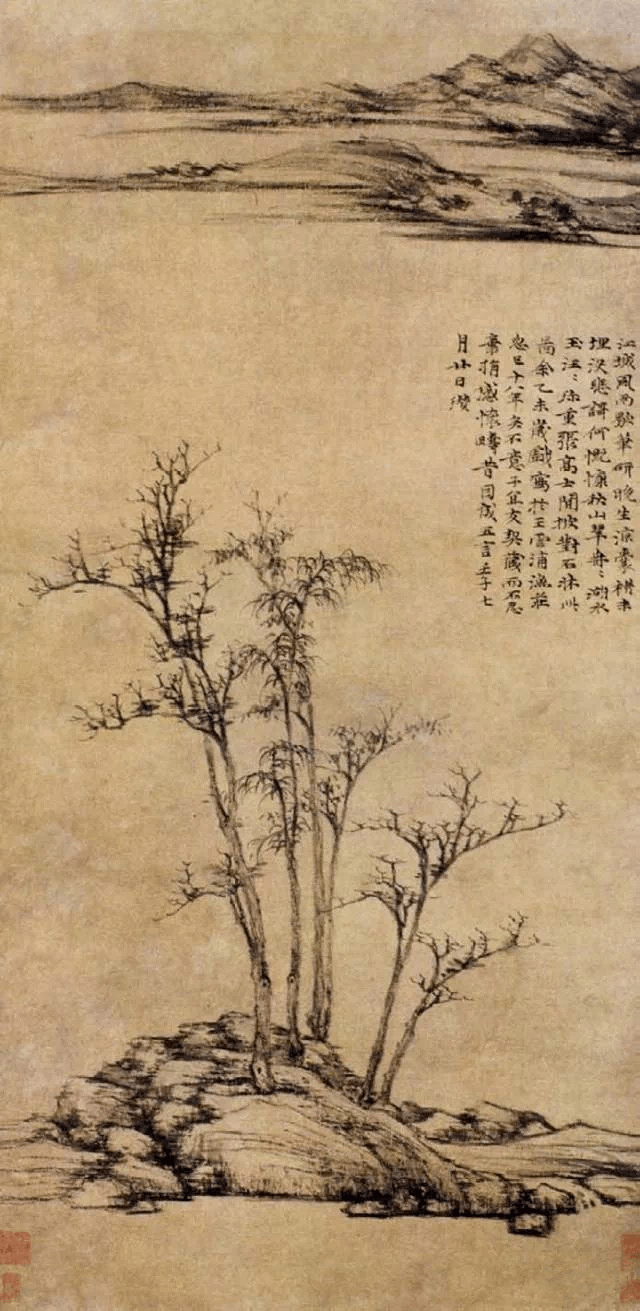 江城風雨歇筆研晚生涼囊楮未
埋沒悲謌何慨慷秋山翠冉〻湖水
玉汪〻珎重張高士閒披對石牀此
圖余乙未歲戲寫於王雲浦漁莊
忽已十八年矣不意子宜友契藏而不忍
棄捐感懷疇昔因成五言壬子七
月廿日瓚